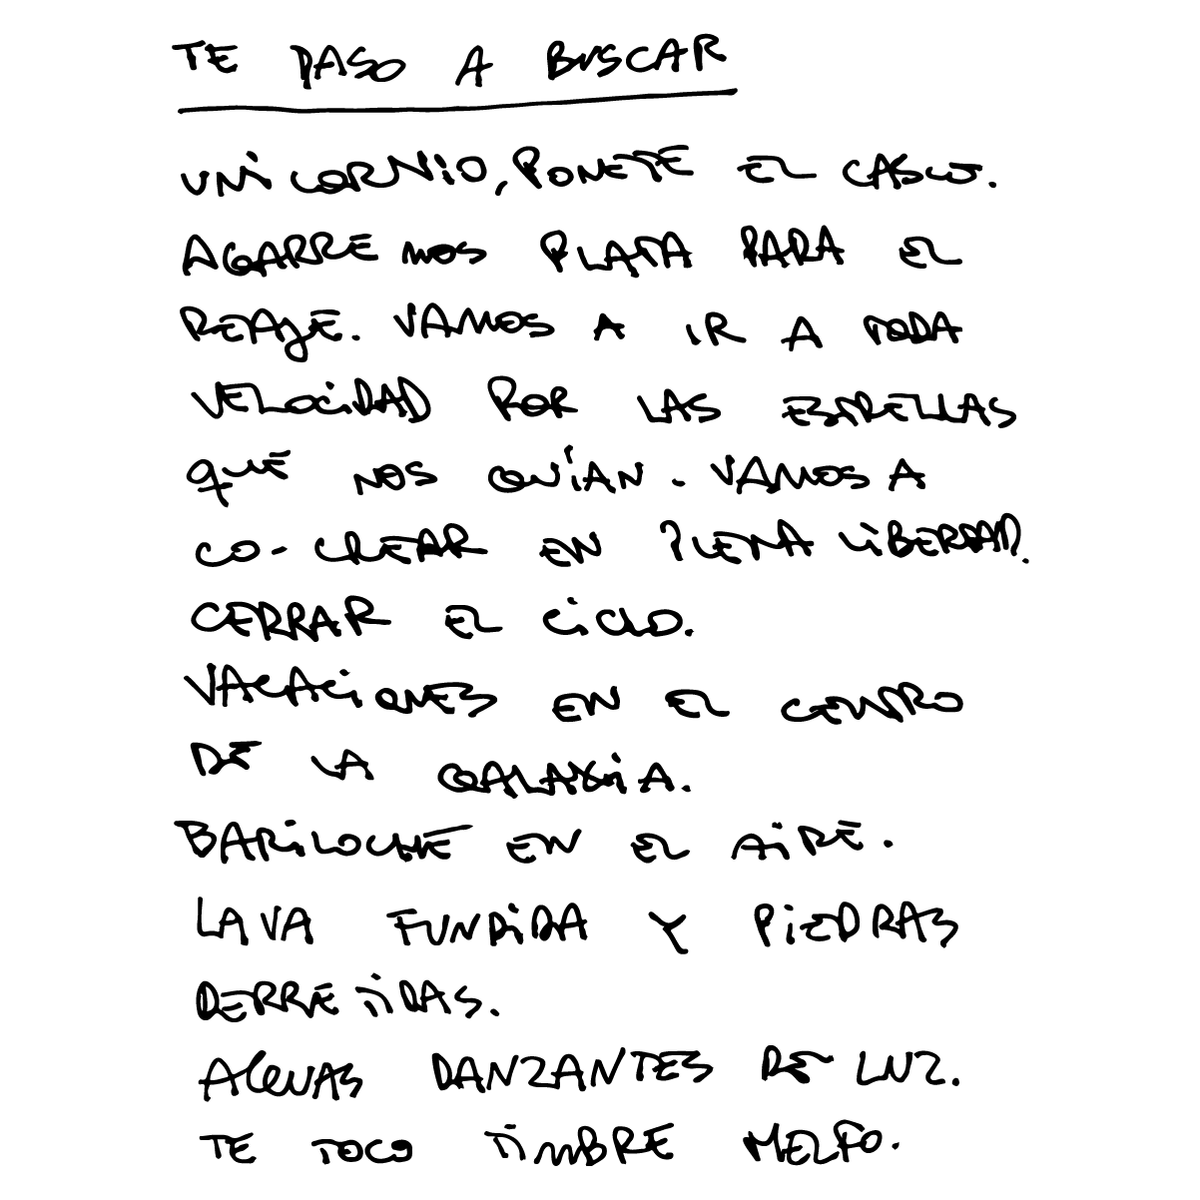 TE PASO A BUSCAR
UNICORNIO, PONETE EL CASCO.
AGARREMOS PLATA PARA EL
PEAJE. VAMOS A IR A TODA
VELOCIDAD POR LAS ESTRELLAS
QUE NOS GUÍAN. VAMOS A
CO-CREAR EN PLENA LIBERTAD.
CERRAR EL CICLO.
VACACIONES EN EL CENTRO
DE LA GALAXIA.
BARILOCHE EN EL AIRE.
LAVA FUNDIDA Y PIEDRAS
DERRETIDAS.
AGUAS DANZANTES DE LUZ.
TE TOCO TIMBRE